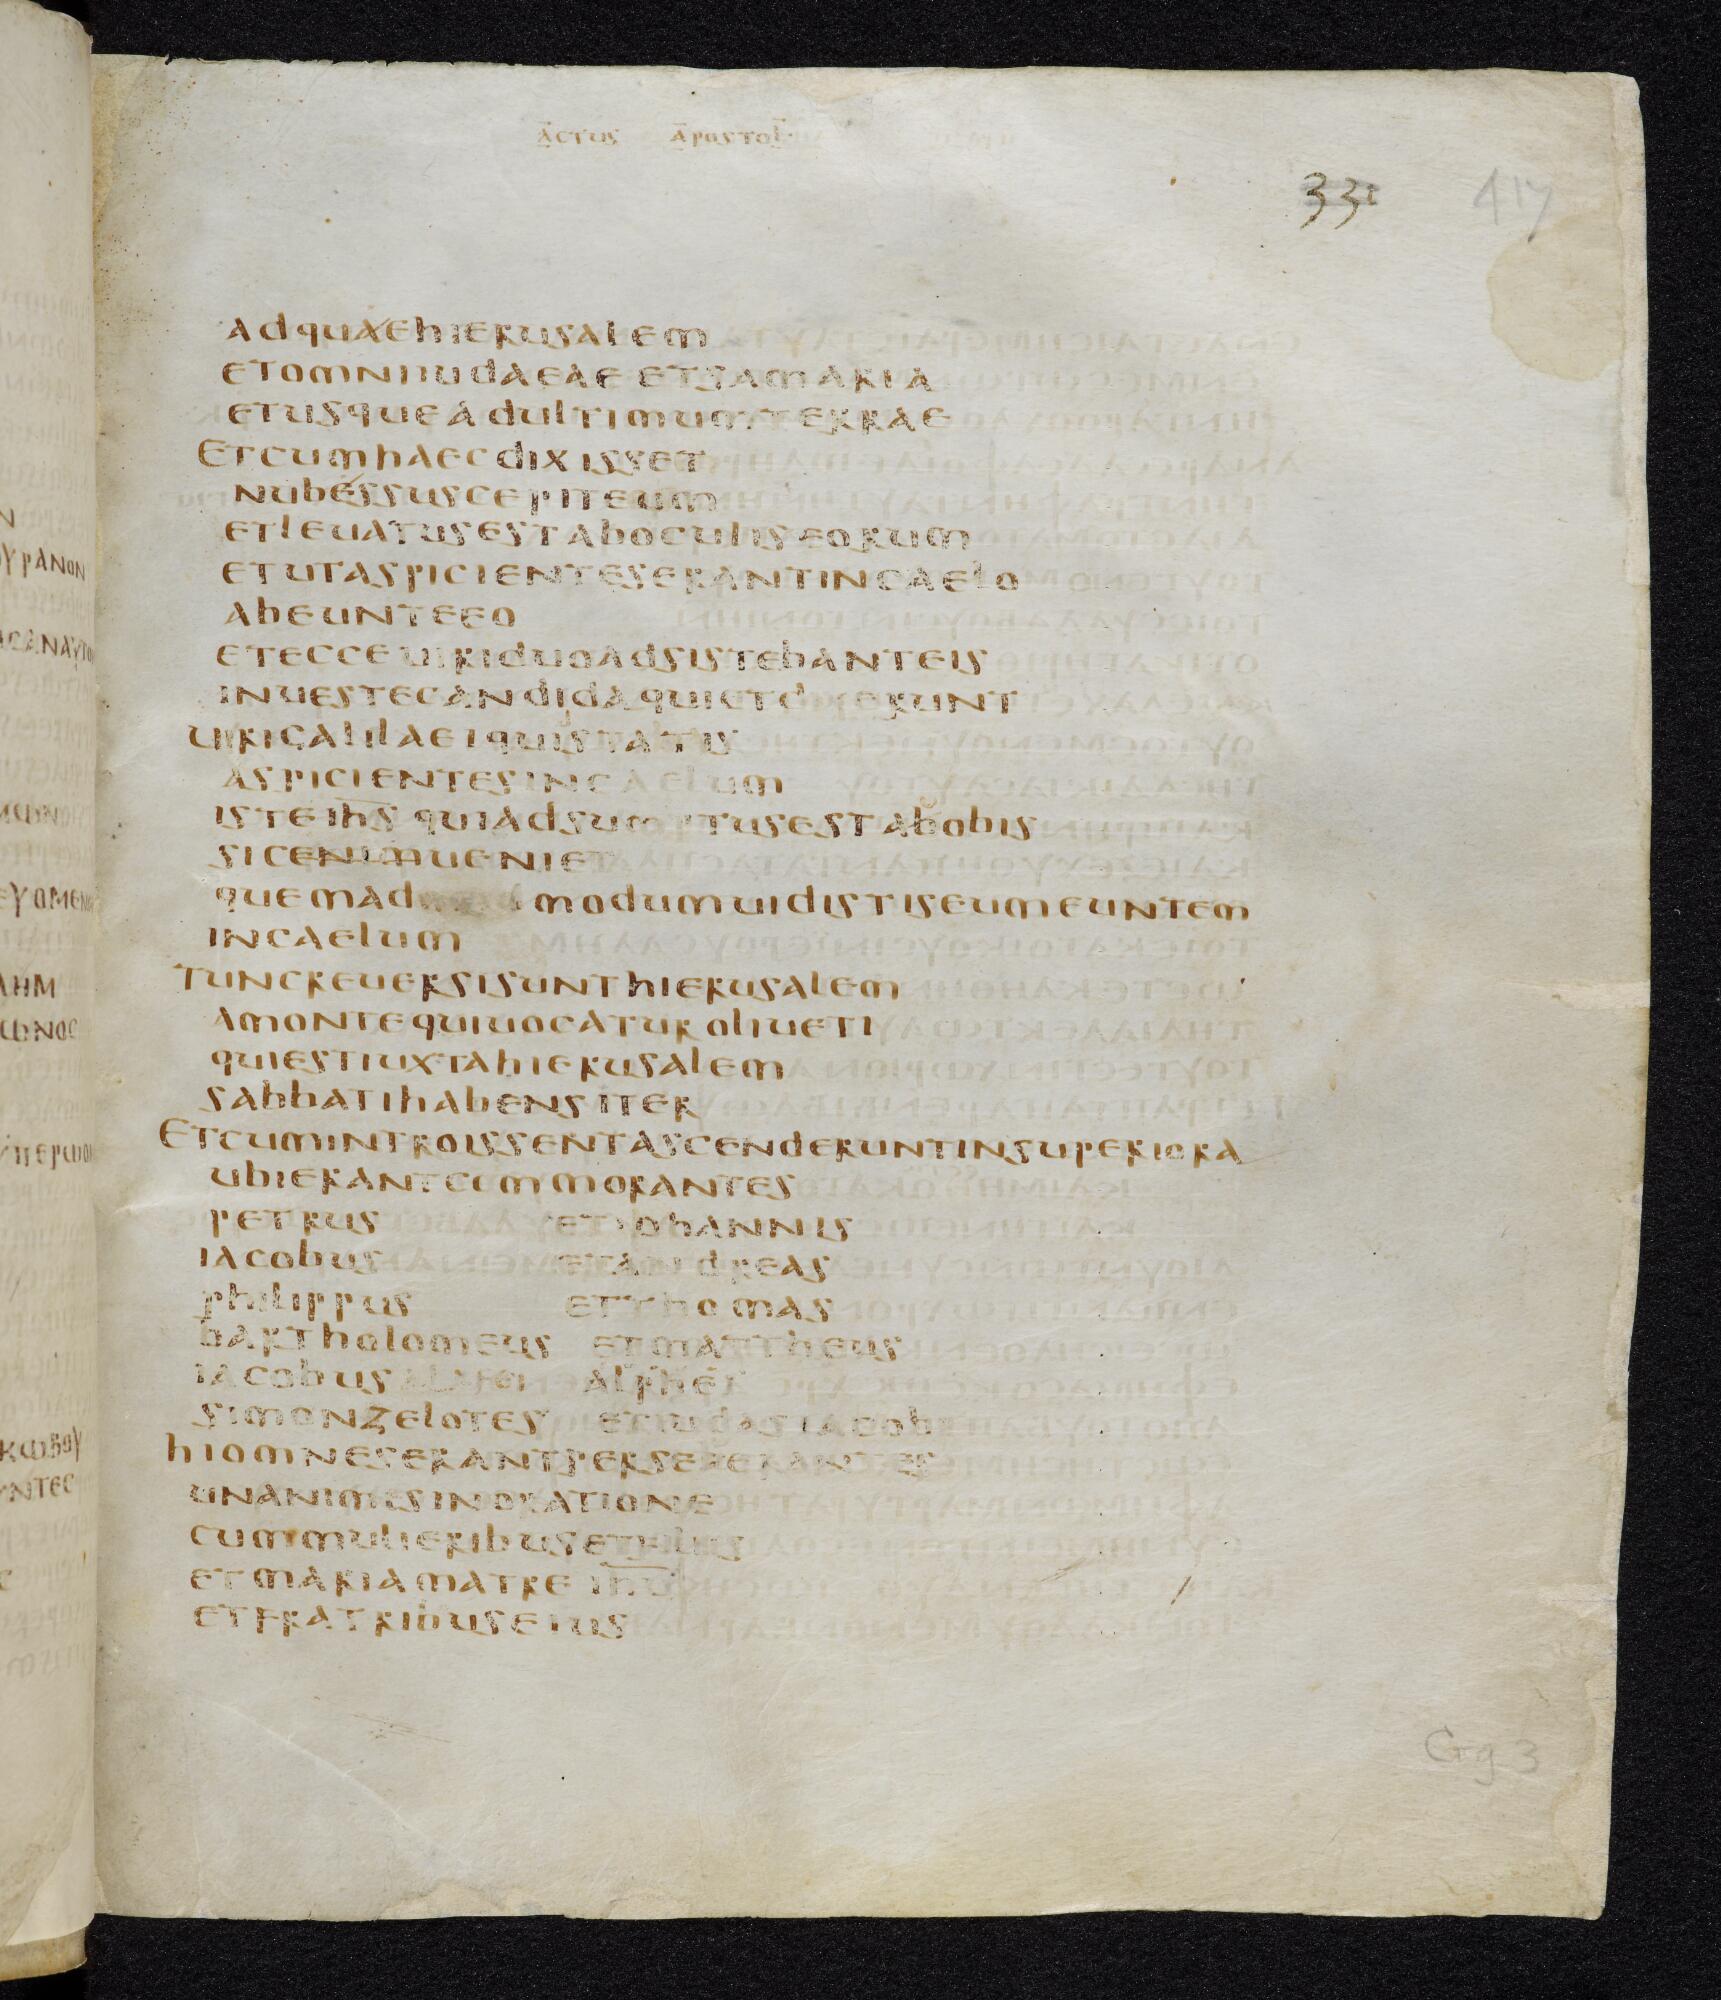 ACTUS APOSTOL
331
417
ADQUAEHIERUSALEM
ETOMNIIUDAEAE ETSAMARIA
ETUSQUEADULTIMUMTERRAE
ETCUMHAECDIXISSET
NUBESSUSCEPITEUM
ETLEUATUSESTABOCULISEORUM
ETUTASPICIENTESERANTINCAELO
ABEUNTEEO
ETECCEUIRIDUOADSISTEBANTEIS
INUESTECANDIDAQUIET
UIRIGALILAEIQUISTATIS
ASPICIENTESINCAELUM
ISTEIHS QUIADSUMPTUSESTABOBIS
SICENIMUENIET
QUEMAD MODUMUIDISTISEUMEUNTEM
INCAELUM
TUNCREUERSISUNTHIERUSALEM
AMONTEQUIUOCATUROLIUETI
QUIESTIUXTAHIERUSALEM
SABBATIHABENSITER
ETCUMINTROISSENTASCENDERUNTINSUPERIORA
UBIERANTCOMMORANTES
PETRUS ETIOHANNIS
IACOBUS ETANDREAS
PHILIPPUS ETTHOMAS
BARTHOLOMEUS ETMATTHEUS
IACOBUS ALPHEI
SIMONZELOTES ETIUDASIACOB
HIOMNESERANTPERSEUERANTES
UNANIMESINORATIONE
CUMMULIERIBUSETFILIIS
ETMARIAMATRE IHU
ETFRATRIBUSEIUS
Gg 3